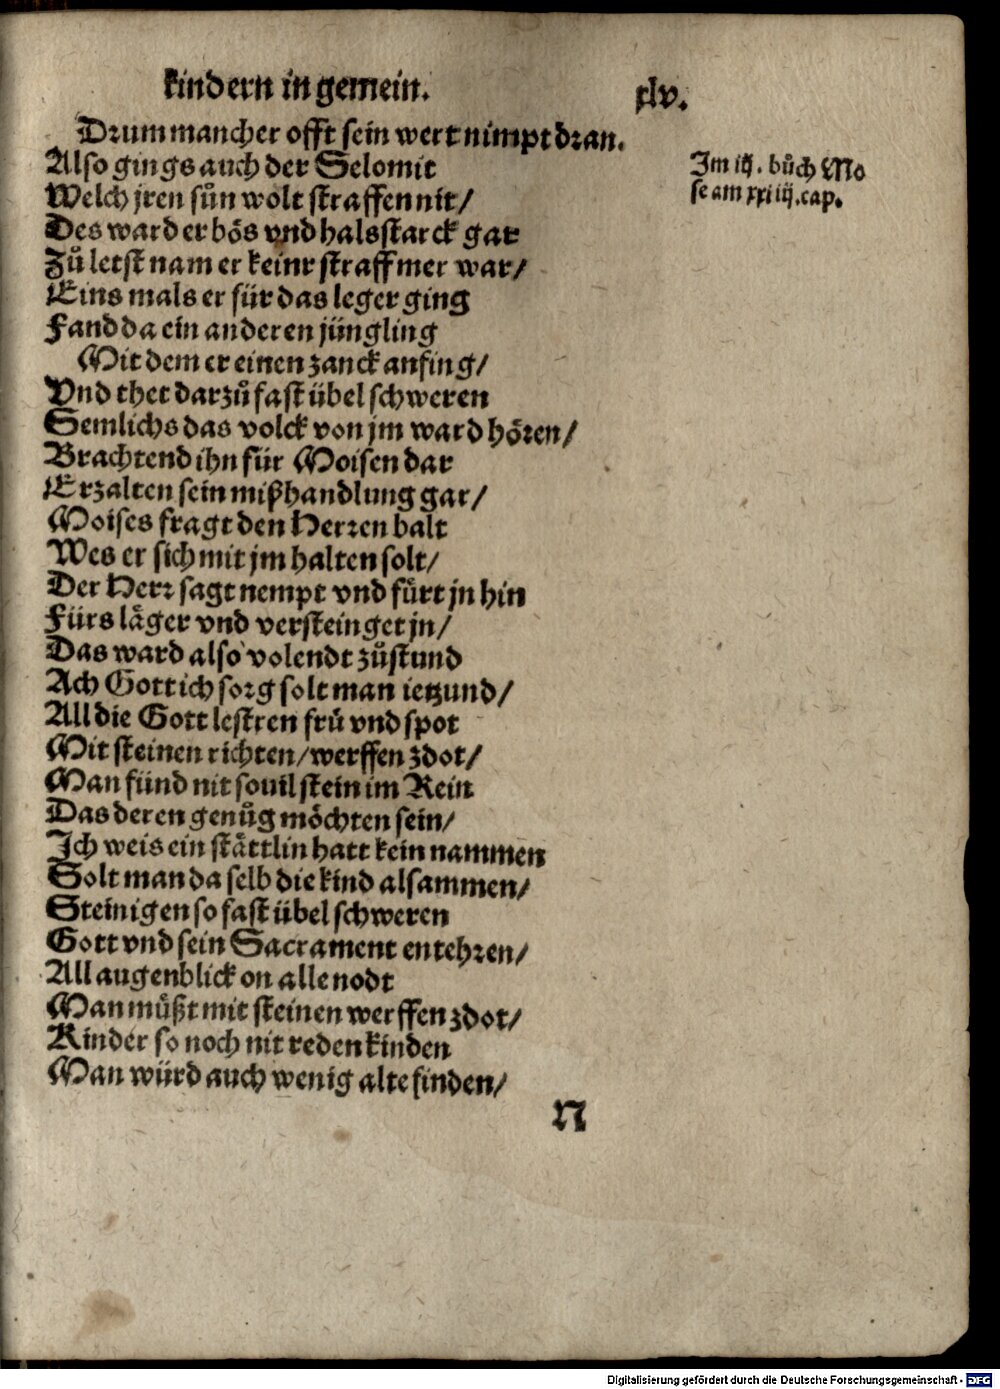 kindern in gemein. xlv.
Drum mancher offt sein wert nimpt dran.
Also gings auch der Selomit
Im iij. bůch Mo
se am xxiiij. cap.
Welch jren sůn wolt straffen nit/
Des ward er bös vnd halsstarck gar
Zů letst nam er keinr straff mer war/
Eins mals er für das leger ging
Fand da ein anderen jüngling
Mit dem er einen zanck anfing/
Vnd thet darzů fast übel schweren
Semlichs das volck von jm ward hören/
Brachtend ihn für Moisen dar
Erzalten sein mißhandlung gar/
Moises fragt den Herren balt
Wes er sich mit jm halten solt/
Der Herr sagt nempt vnd fůrt jn hin
Fürs läger vnd versteinget jn/
Das ward also volendt zůstund
Ach Gott ich sorg solt man ietzund/
All die Gott lestren frů vnd spot
Mit steinen richten/werffen zdot/
Man fünd nit souil stein im Rein
Das deren genůg möchten sein/
Ich weis ein stättlin hatt kein nammen
Solt man da selb die kind alsammen/
Steinigen so fast übel schweren
Gott vnd sein Sacrament entehren/
All augenblick on alle nodt
Man můßt mit steinen werffen zdot/
Kinder so noch nit reden kinden
Man würd auch wenig alte finden/
N
Digitalisierung gefördert durch die Deutsche Forschungsgemeinschaft - DFG